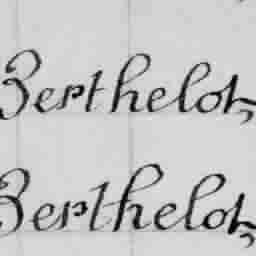 Berthelot,
Berthelot,